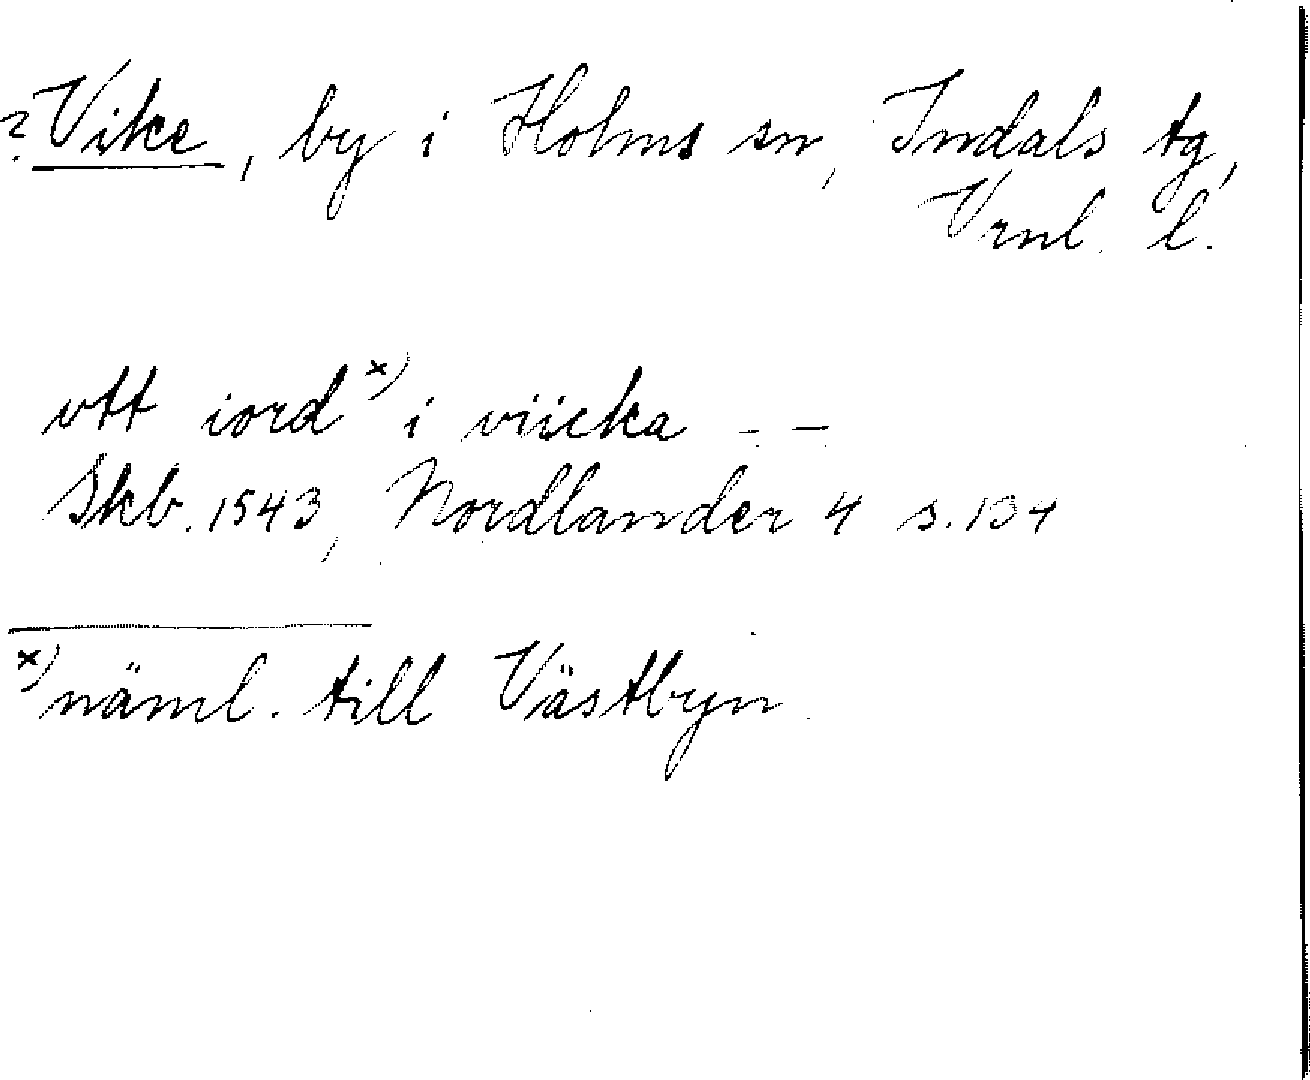 ? Vike, by i Holms sn, Indals tg,
Vrnl. l.
vtt iord x) i viicka - -
Skb. 1543, Nordlander 4 s. 134
x) näml. till Västbyn.